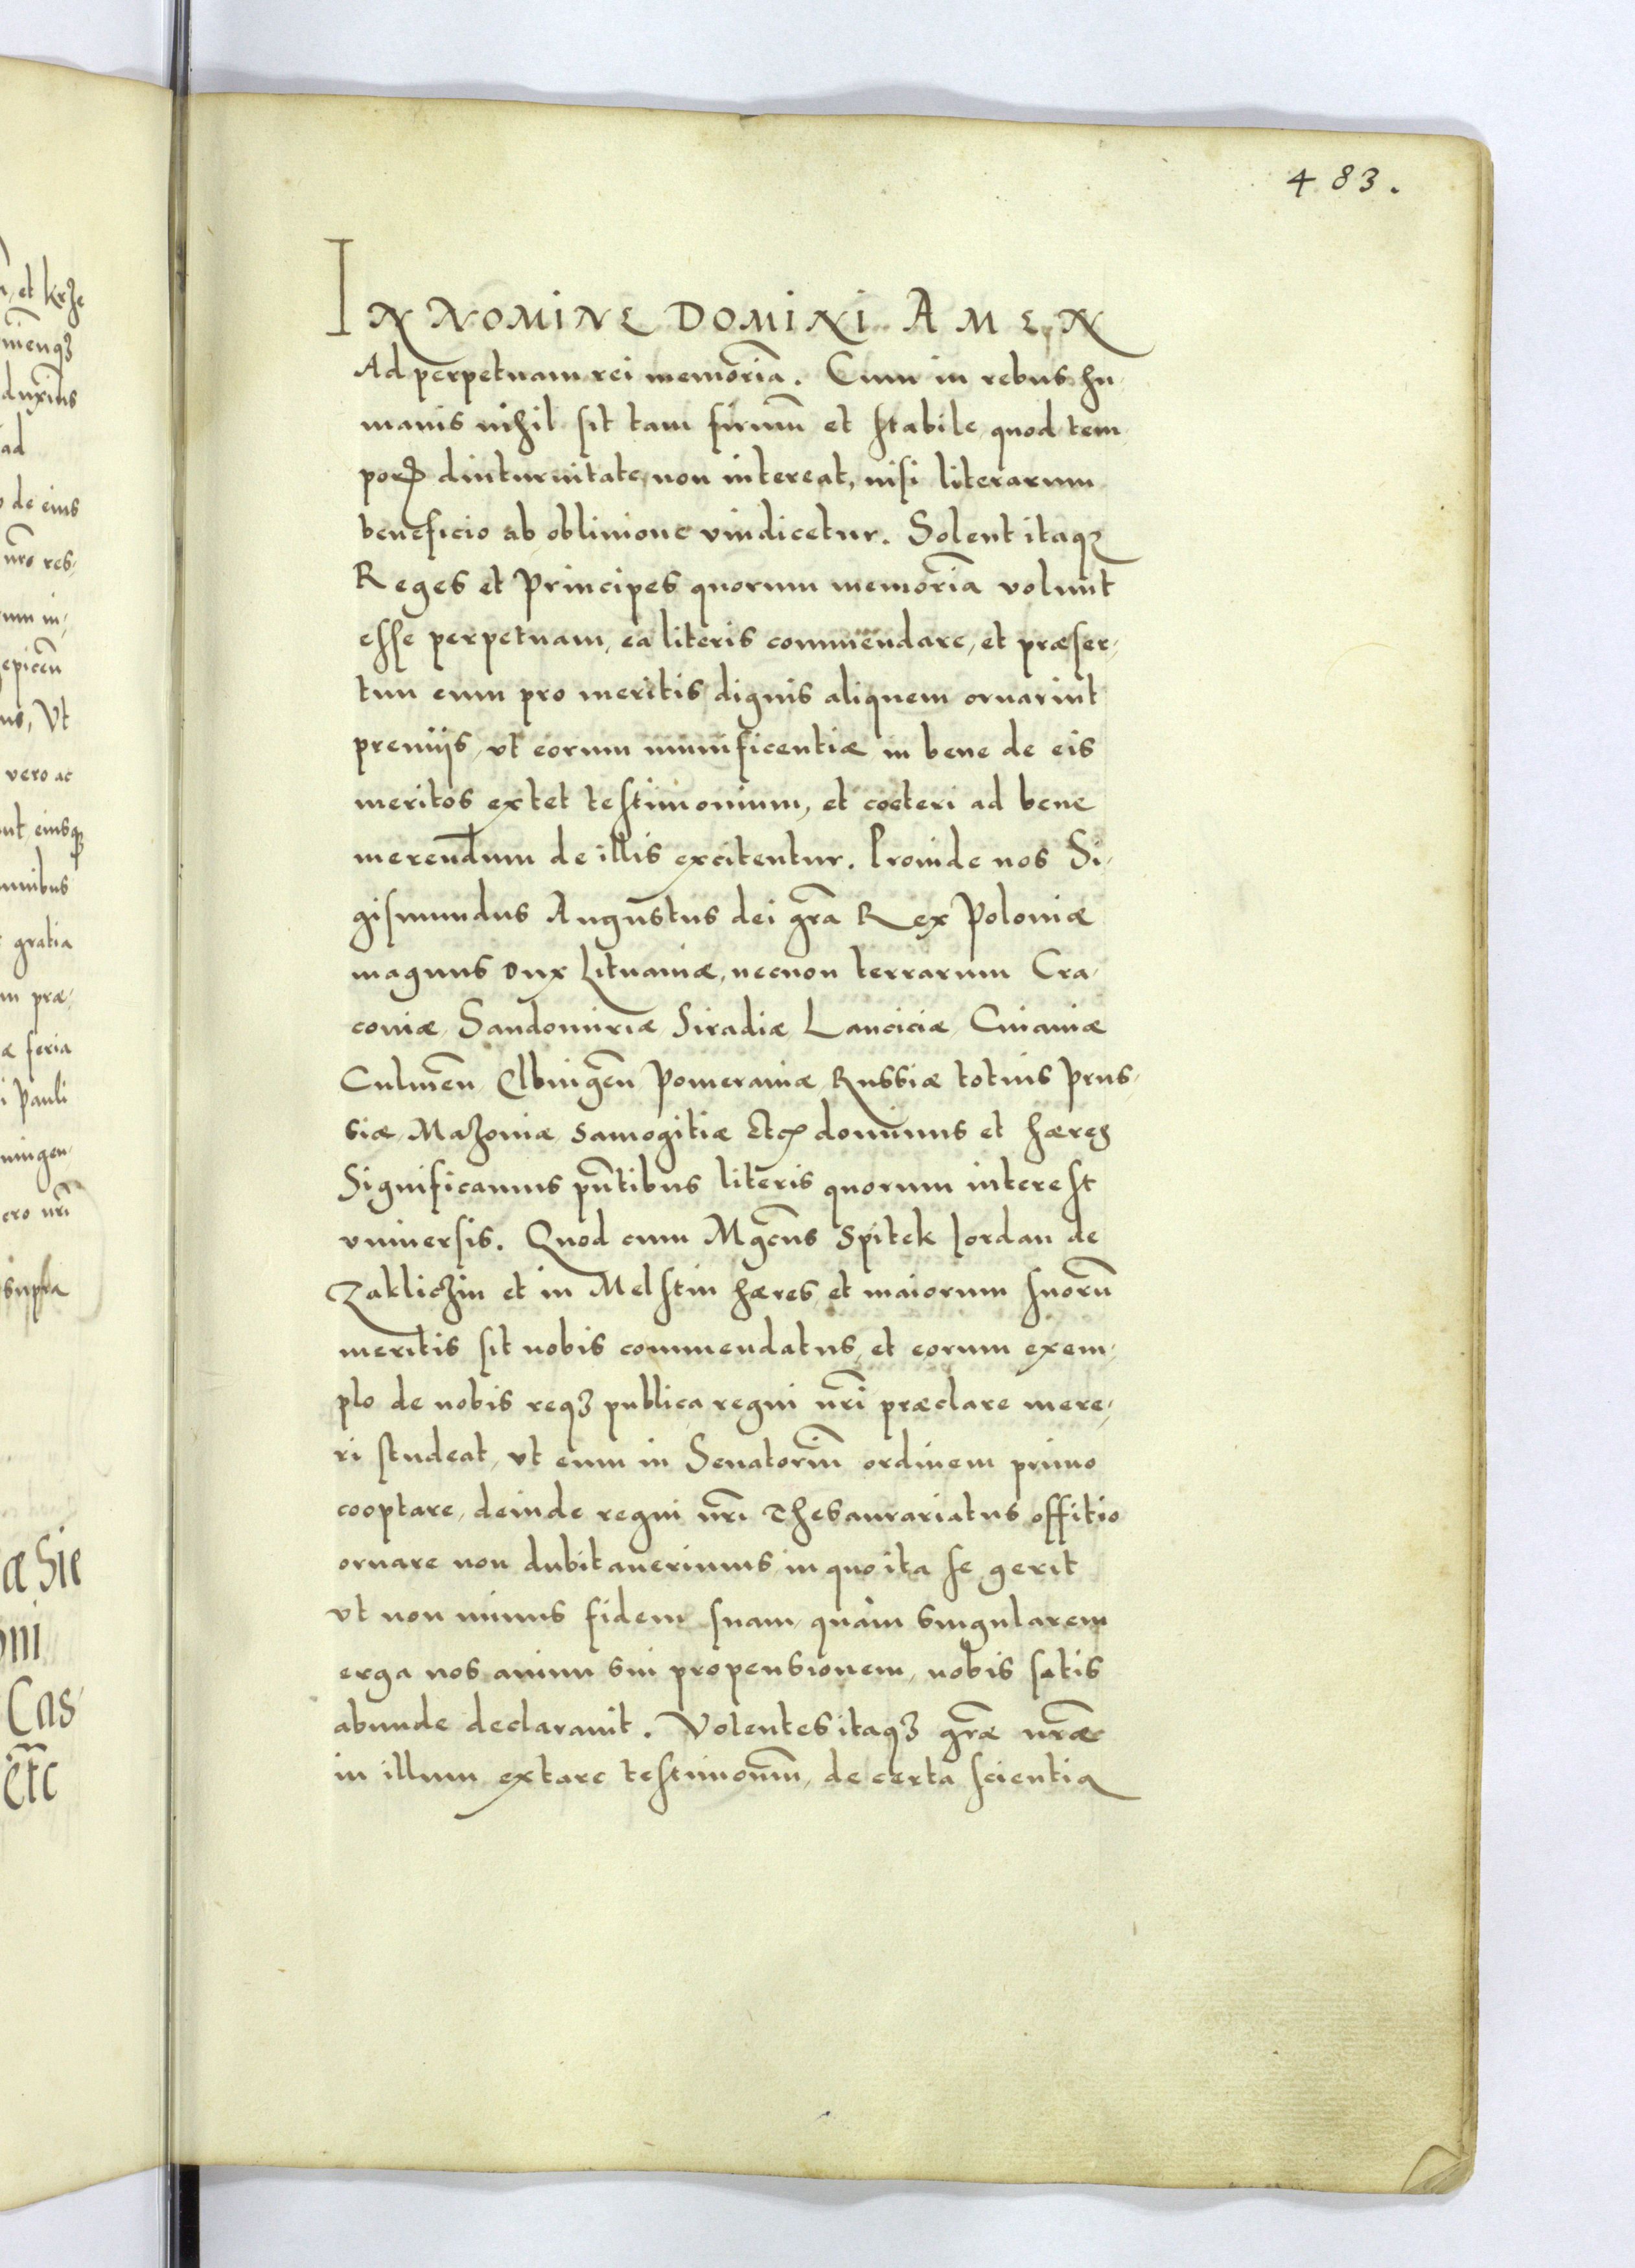 n, et krze
inenq3
duximus
ad
o de eius
nr̃o res,
rum in,
epicen̄
us, Vt
vero ac
unt eiusq3
mnibus
gratia
m præ,
æ feria
i Pauli
ningen,
ero nr̃i
supra
æ Sie
oni
Cas,
et̃c
483.
IN NOMINE DOMINI AMEN
Ad perpetuam rei memoriā. Cum in rebus hu,
manis nihil sit tam firmū et stabile, quod tem,
porꝭ diuturnitate non intereat, nisi literarum
beneficio ab obliuione vindicetur. Solent itaq3
Reges et Principes quorum memoriā volunt
esse perpetuam, ea literis commendare, et præser,
tim cum pro meritis dignis aliquem ornarint
premijs, vt eorum munificentiæ in bene de eis
meritos extet testimonium, et cœteri ad bene
merendum de illis excitentur. Proinde nos Si,
gismundus Augustus dei gr̃a Rex Poloniæ
magnus Dux Lituaniæ, necnon terrarum Cra,
couiæ, Sandomiriæ Siradiæ Lanciciæ, Cuiauiæ
Culmeñ, Elbingeñ Pomeraniæ, Russiæ totius Prus,
siæ, Mazouiæ, Samogitiæ Etcꝭ dominus et hæres
Significamus pñtibus literis quorum interest
vniuersis. Quod cum Mgcus Spitek Iordan de
Zakliczin et in Melstin hæres, et maiorum suorū
meritis sit nobis commendatus, et eorum exem,
plo de nobis req3 publica regni nr̃i præclare mere,
ri studeat, vt eum in Senatoriū ordinem primo
cooptare, deinde regni nr̃i Thesaurariatus offitio
ornare non dubitauerimus, in quo ita se gerit
vt non minus fidem suam, quàm singularem
erga nos animi sui propensionem, nobis satis
abunde declarauit. Volentes itaq3 gr̃æ nr̃æ
in illum extare testimoniū, de certa scientia